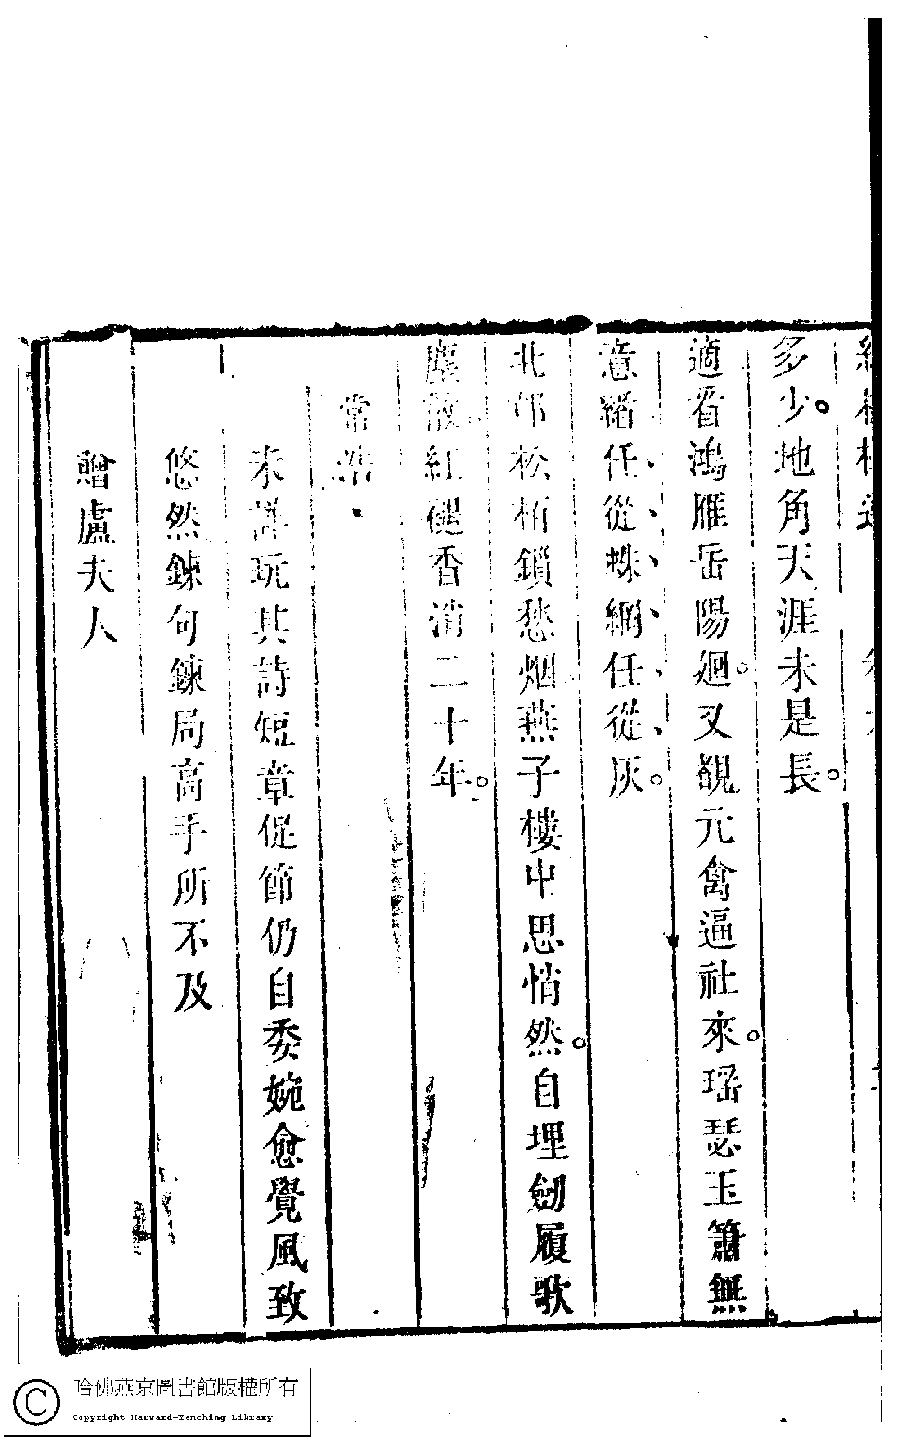 多少。地角天涯未是長。
適看鴻雁岳陽廻。又覩元禽逼社來。瑶瑟玉簫無
意緒任從蛛網任從灰。
北邙松栢鎖愁烟燕子樓中思悄然。自埋劒履歌
塵散紅褪香消二十年。
常浩
未詳玩其詩短章促節仍自委婉愈覺風致
悠然鍊句鍊局高手所不及
贈盧夫人
哈佛燕京圖書館版權所有
Copyright Harvard-Yenching Library